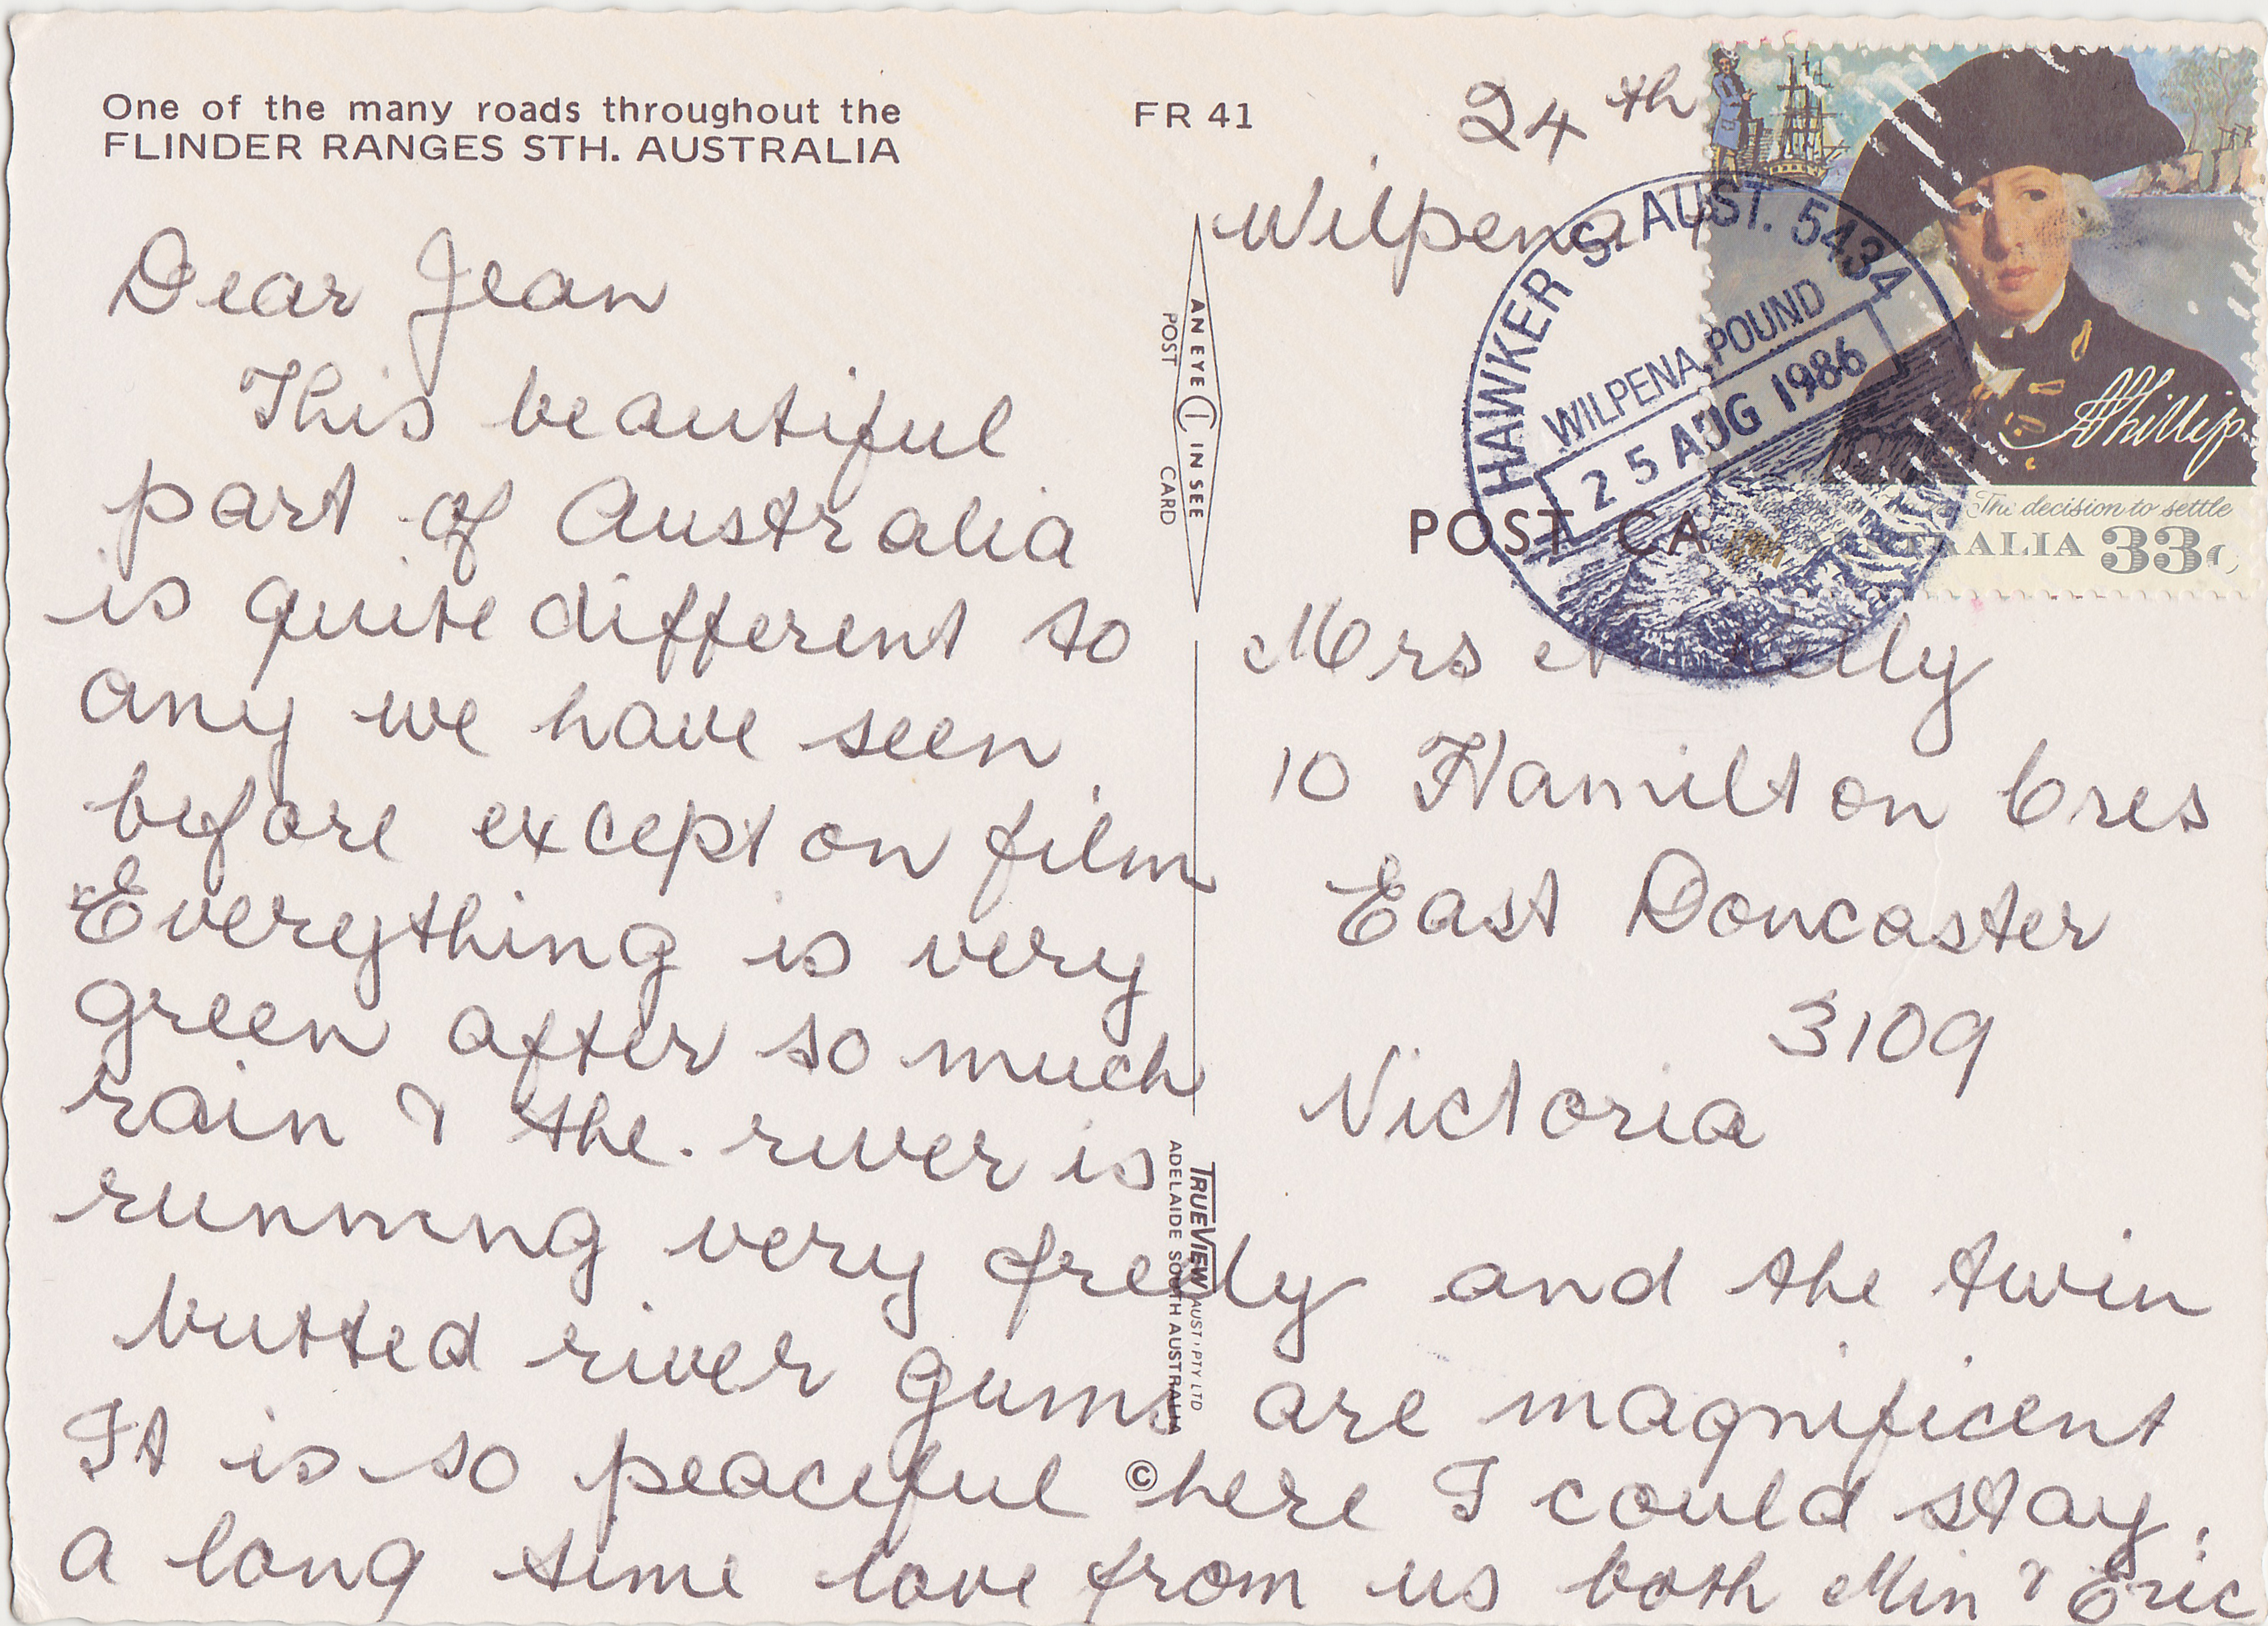 One of the many roads throughout the
FLINDER RANGES STH. AUSTRALIA
FR 41
24th
Wilpena
Dear Jean
This beautiful
part of Australia
is quite different to
any we have seen
before except on film
Everything is very
green after so much
rain & the. river is
running very freely and the twin
butted river gums are magnificent
It is so peaceful here I could stay
a long time love from us both Min & Eric
AN EYE IN SEE
POST CARD
TRUEVIEW AUST. PTY LTD
ADELAIDE SOUTH AUSTRALIA
©
HAWKER S. AUST. 5434
WILPENA POUND
25 AUG 1986
APhillip
The decision to settle
AUSTRALIA 33c
POST CA
Mrs
10 Hamilton Cres
East Doncaster
3109
Victoria